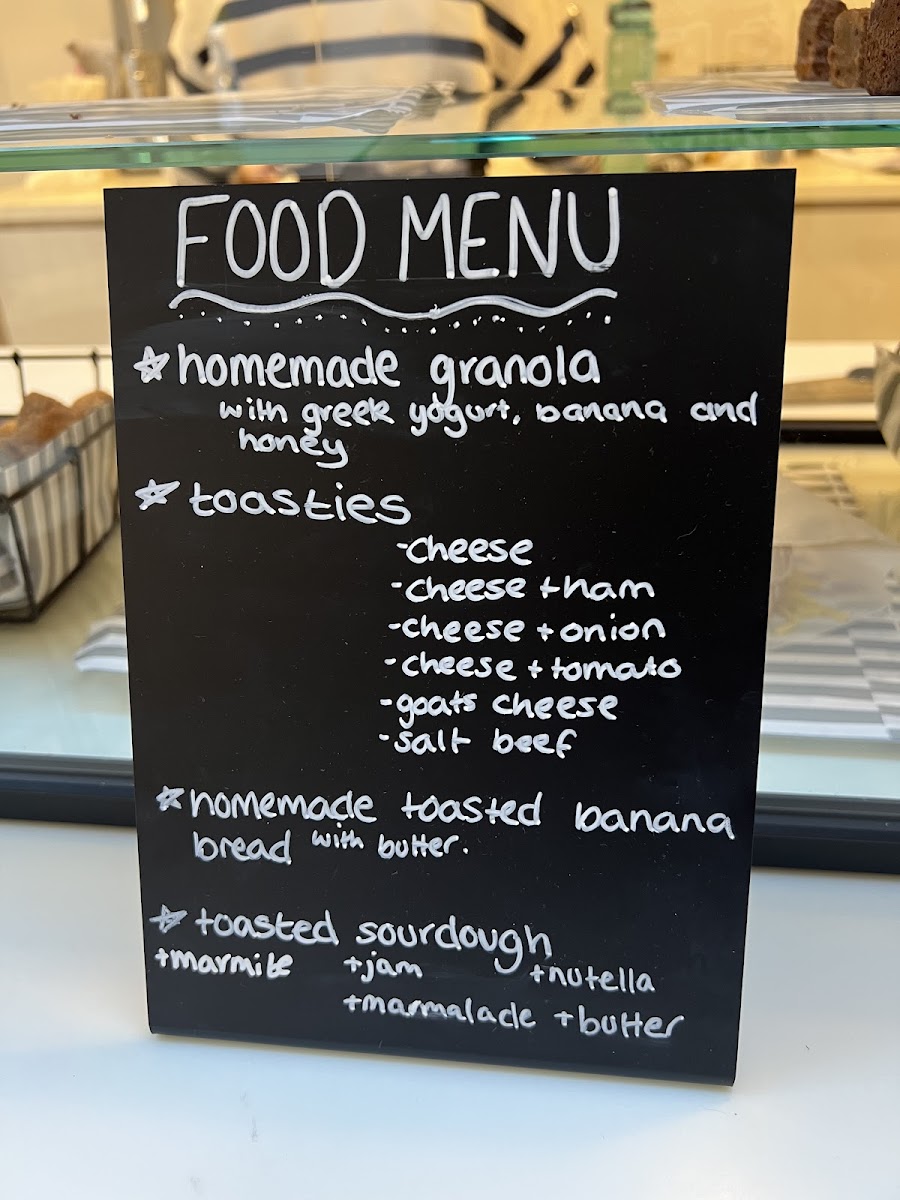 FOOD MENU
homemade granola
with greek yogurt, banana and
honey
toasties
-cheese
-cheese +ham
-cheese + onion
-cheese + tomato
-goats cheese
-salt beef
homemade toasted banana
bread with butter.
toasted sourdough
+marmite +jam +nutella
+marmalade +butter